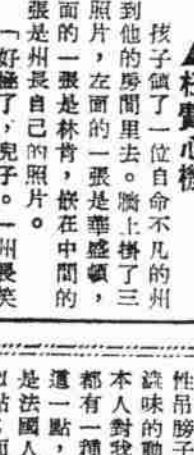 ▲枉費心機
孩子領了一位自命不凡的州
到他的房間里去。牆上掛了三
照片，左面的一張是華盛頓，
面的一張是林肯，嵌在中間的
張是州長自己的照片。
「好極了，兒子。一州長笑
性吊膀子
味的動
本人對我
都有一種
這一點，
是法國人